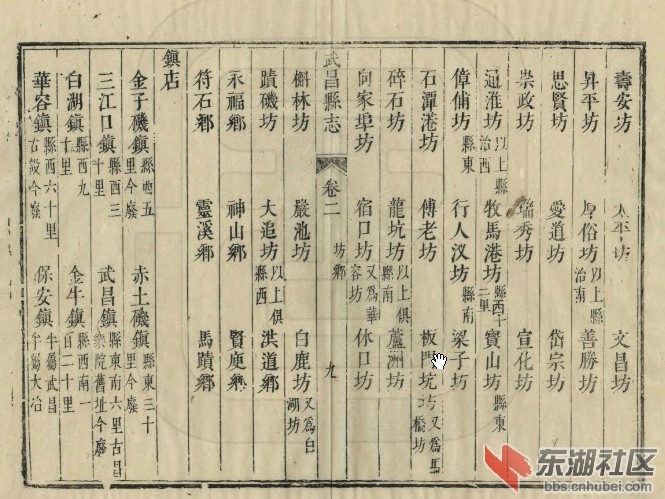 壽安坊 太平坊 文昌坊
昇平坊 厚俗坊 以上俱治南 善勝坊
思賢坊 愛道坊 岱宗坊
崇政坊 瑞秀坊 宣化坊
通淮坊 以上縣治西 牧馬港坊 縣西十二里 寶山坊 縣東
偉俌坊 縣東 行人汊坊 縣南 梁子坊
石潭港坊 傅老坊 板門坑坊 又爲馬橋坊
碎石坊 龍坑坊 以上俱縣南 蘆洲坊
向家埠坊 宿口坊 又爲華容坊 休口坊
武昌縣志 卷二 坊鄉 九
槲林坊 嚴池坊 白鹿坊 又爲白湖坊
蹟磯坊 大追坊 以上俱縣西 洪道鄉
永福鄉 神山鄉 賢庾鄉
符石鄉 靈溪鄉 馬蹟鄉
鎮店
金子磯鎮 縣西五里今廢 赤土磯鎮 縣東三十里今廢
三江口鎮 縣西三十里 武昌鎮 縣東南六里古昌樂院舊址今廢
白湖鎮 縣西九十里 金牛鎮 縣西南一百二十里
華容鎮 縣西六十里古設今廢 保安鎮 半屬武昌半屬大冶
东湖社区
bbs.cnhubei.com